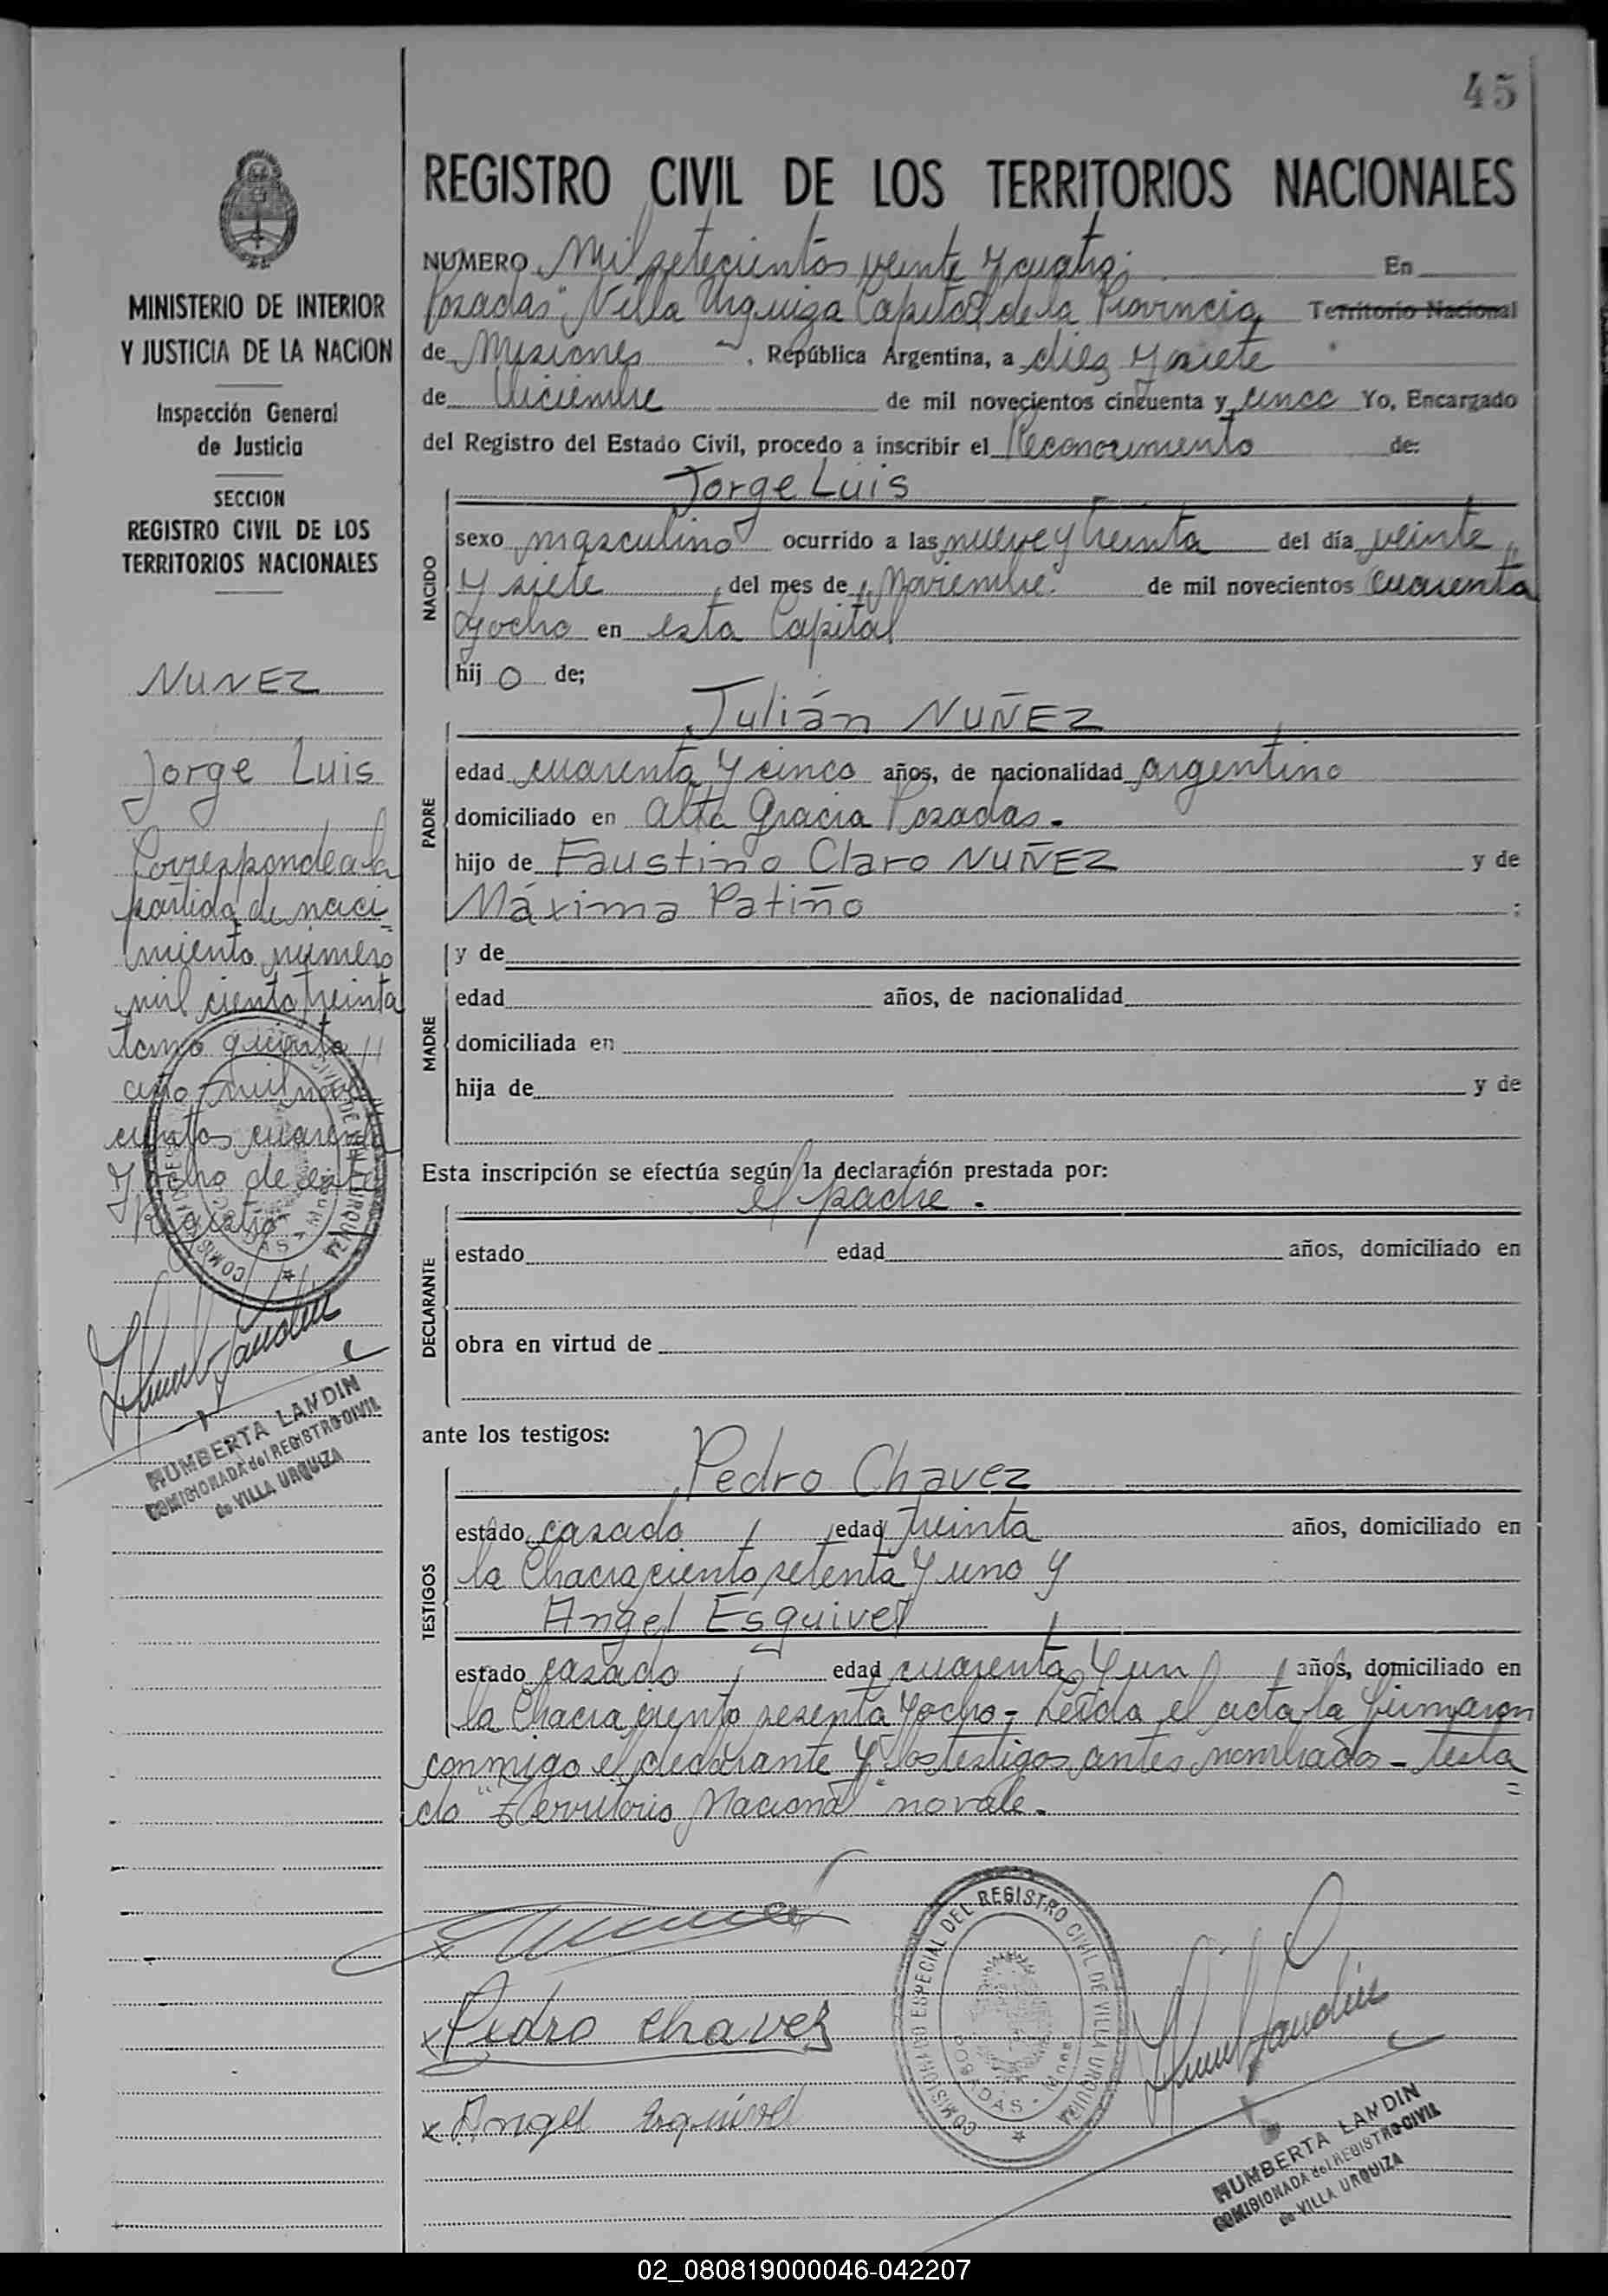 45
REGISTRO CIVIL DE LOS TERRITORIOS NACIONALES
MINISTERIO DE INTERIOR
Y JUSTICIA DE LA NACION
Inspección General
de Justicia
SECCION
REGISTRO CIVIL DE LOS
TERRITORIOS NACIONALES
NUNEZ
Jorge Luis
Corresponde a la
partida de naci
miento número
mil ciento treinta
tomo quinto
año mil nove
cientos cuarenta
y ocho de este
Registro
HUMBERTA LANDIN
COMISIONADA del REGISTRO CIVIL
de VILLA URQUIZA
NUMERO Mil setecientos veinte y cuatro. En
Posadas" Villa Urquiza Capital de la Provincia Territorio Nacional
de Misiones, República Argentina, a diez y siete
de Diciembre de mil novecientos cincuenta y cinco Yo, Encargado
del Registro del Estado Civil, procedo a inscribir el Reconocimiento de:
Jorge Luis
NACIDO
sexo masculino ocurrido a las nueve y treinta del día veinte
y siete del mes de Noviembre. de mil novecientos cuarenta
y ocho en esta Capital
hij o de;
Julián NUÑEZ
PADRE
edad cuarenta y cinco años, de nacionalidad argentino
domiciliado en Alta Gracia Posadas.-
hijo de Faustino Claro NUÑEZ y de
Máxima Patiño ;
MADRE
y de
edad años, de nacionalidad
domiciliada en
hija de y de
Esta inscripción se efectúa según la declaración prestada por:
el padre.
DECLARANTE
estado edad años, domiciliado en
obra en virtud de
ante los testigos:
Pedro Chavez
TESTIGOS
estado casado, edad treinta años, domiciliado en
la Chacra ciento setenta y uno y
Angel Esquivel
estado casado, edad cuarenta y un años, domiciliado en
la Chacra ciento sesenta y ocho - Leída el acta la firmaron
conmigo el declarante y los testigos antes nombrados - testa
do "Territorio Nacional" no vale.
Pedro Chavez
Angel Esquivel
COMISIONADO ESPECIAL DEL REGISTRO CIVIL DE VILLA URQUIZA
POSADAS - Mnes.
HUMBERTA LANDIN
COMISIONADA del REGISTRO CIVIL
de VILLA URQUIZA
02_080819000046-042207